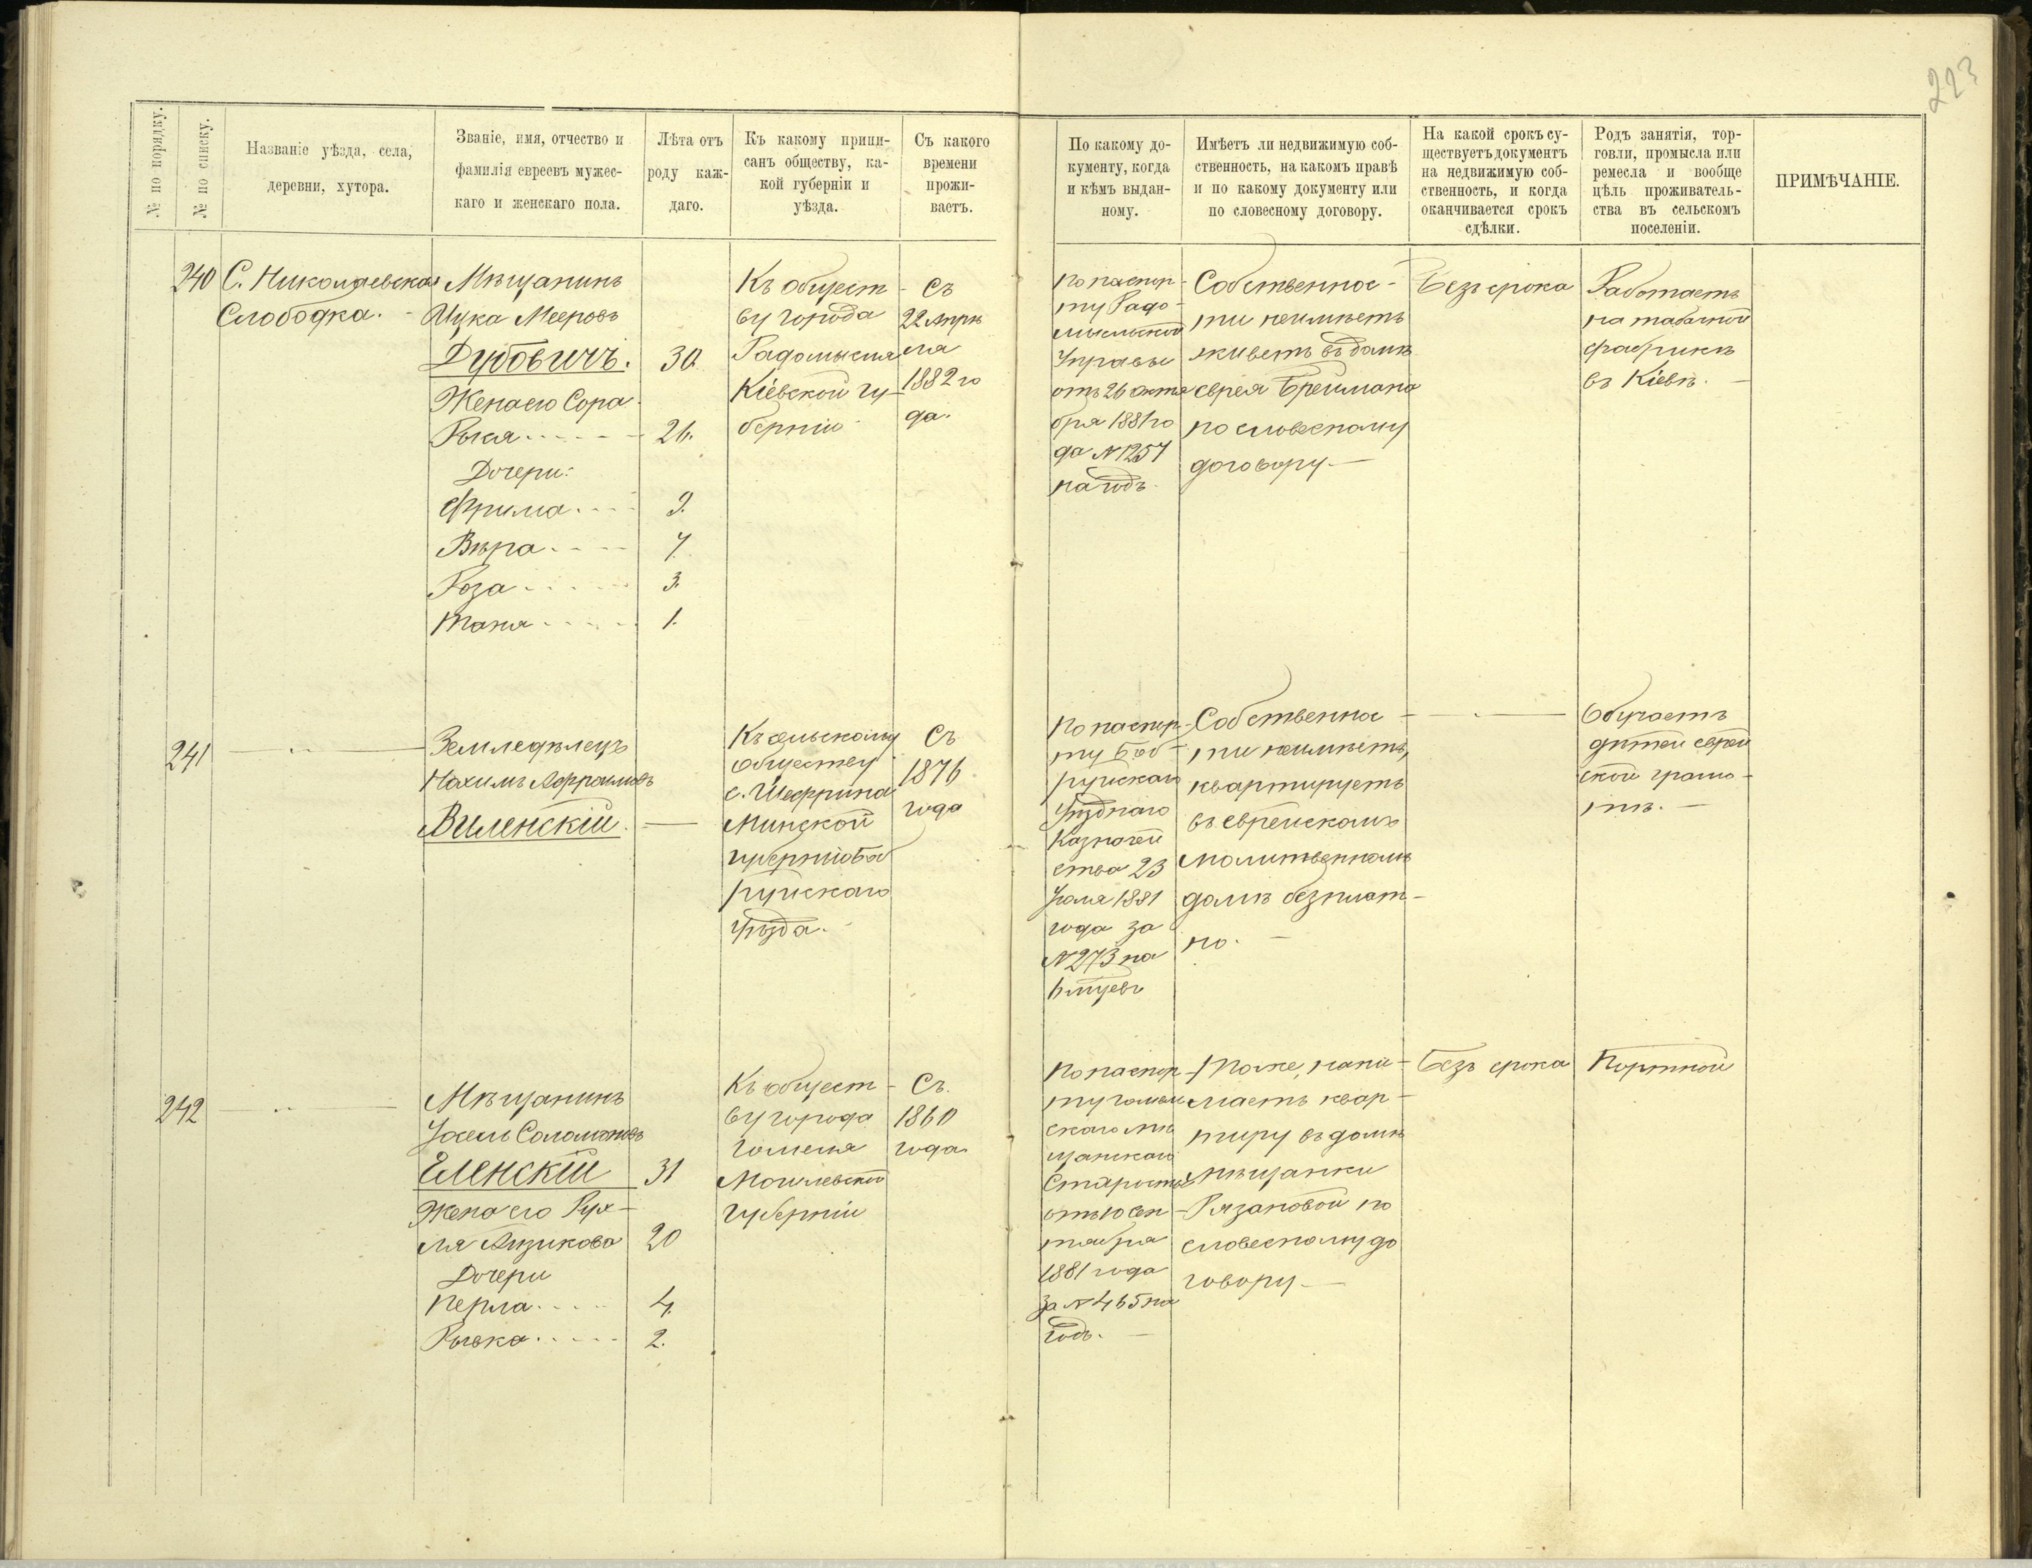 223
№ по порядку.
№ по списку.
Названіе уѣзда, села,
деревни, хутора.
Званіе, имя, отчество и
фамилія евреевъ мужес-
каго и женскаго пола.
Лѣта отъ
роду каж-
даго.
Къ какому припи-
санъ обществу, ка-
кой губерніи и
уѣзда.
Съ какого
времени
прожи-
ваетъ.
По какому до-
кументу, когда
и кѣмъ выдан-
ному.
Имѣетъ ли недвижимую соб-
ственность, на какомъ правѣ
и по какому документу или
по словесному договору.
На какой срокъ су-
ществуетъ документъ
на недвижимую соб-
ственность, и когда
оканчивается срокъ
сдѣлки.
Родъ занятія, тор-
говли, промысла или
ремесла и вообще
цѣль проживатель-
ства въ сельскомъ
поселеніи.
ПРИМѢЧАНІЕ.
240
С. Николаевская
Слободка.
Мѣщанинъ
Ицка Мееровъ
Дубовичъ. 30
Жена его Сора
Рыся 26.
Дочери:
Фрима 9.
Вѣра 7.
Роза 3.
Маня 1.
Къ общест-
ву города
Радомысля
Кіевской гу-
берніи
Съ
22 апрѣ
ля
1882 го
да.
По паспор-
ту Радо-
мысльской
Управы
отъ 26 октя
бря 1881 го
да № 1257
на годъ.
Собственнос-
ти неимѣетъ
живетъ въ домѣ
еврея Бреймана
по словесному
договору.
Безъ срока
Работаетъ
на табачной
фабрикѣ
въ Кіевѣ.
241
Земледѣлецъ
Нахимъ Афроимовъ
Виленскій.
Къ сельскому
обществу
с. Щедрина
Минской
губерніи Боб
руйскаго
уѣзда.
Съ
1876
года
По паспор-
ту Боб-
руйскаго
Уѣзднаго
Казначей
ства 23
Іюля 1881
года за
№ 273 на
6 мѣсяцевъ
Собственнос-
ти неимѣетъ,
квартируетъ
въ еврейскомъ
молитвенномъ
домѣ безплат-
но.
Обучаетъ
дѣтей еврей
ской грамо-
тѣ.
242
Мѣщанинъ
Іосель Соломоновъ
Еленскій 31
Жена его Рух-
ля Айзикова 20
Дочери
Перла 4.
Рывка 2.
Къ общест-
ву города
Гомеля
Могилевской
губерніи
Съ
1860
года
По паспор-
ту гомель
скаго мѣ
щанскаго
Старосты
отъ 10 сен-
тября
1881 года
за № 465 на
годъ.
Тоже, нани-
маетъ квар-
тиру въ домѣ
мѣщанки
Рязановой по
словесному до
говору.
Безъ срока
Портной